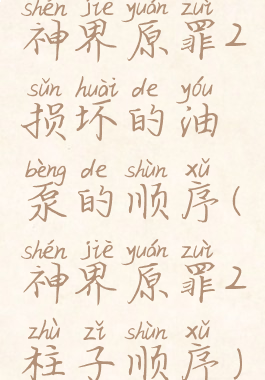 shén jiè yuán zuì
神界原罪2
sǔn huài de yóu
损坏的油
bèng de shùn xǔ
泵的顺序(
shén jiè yuán zuì
神界原罪2
zhù zǐ shùn xǔ
柱子顺序)